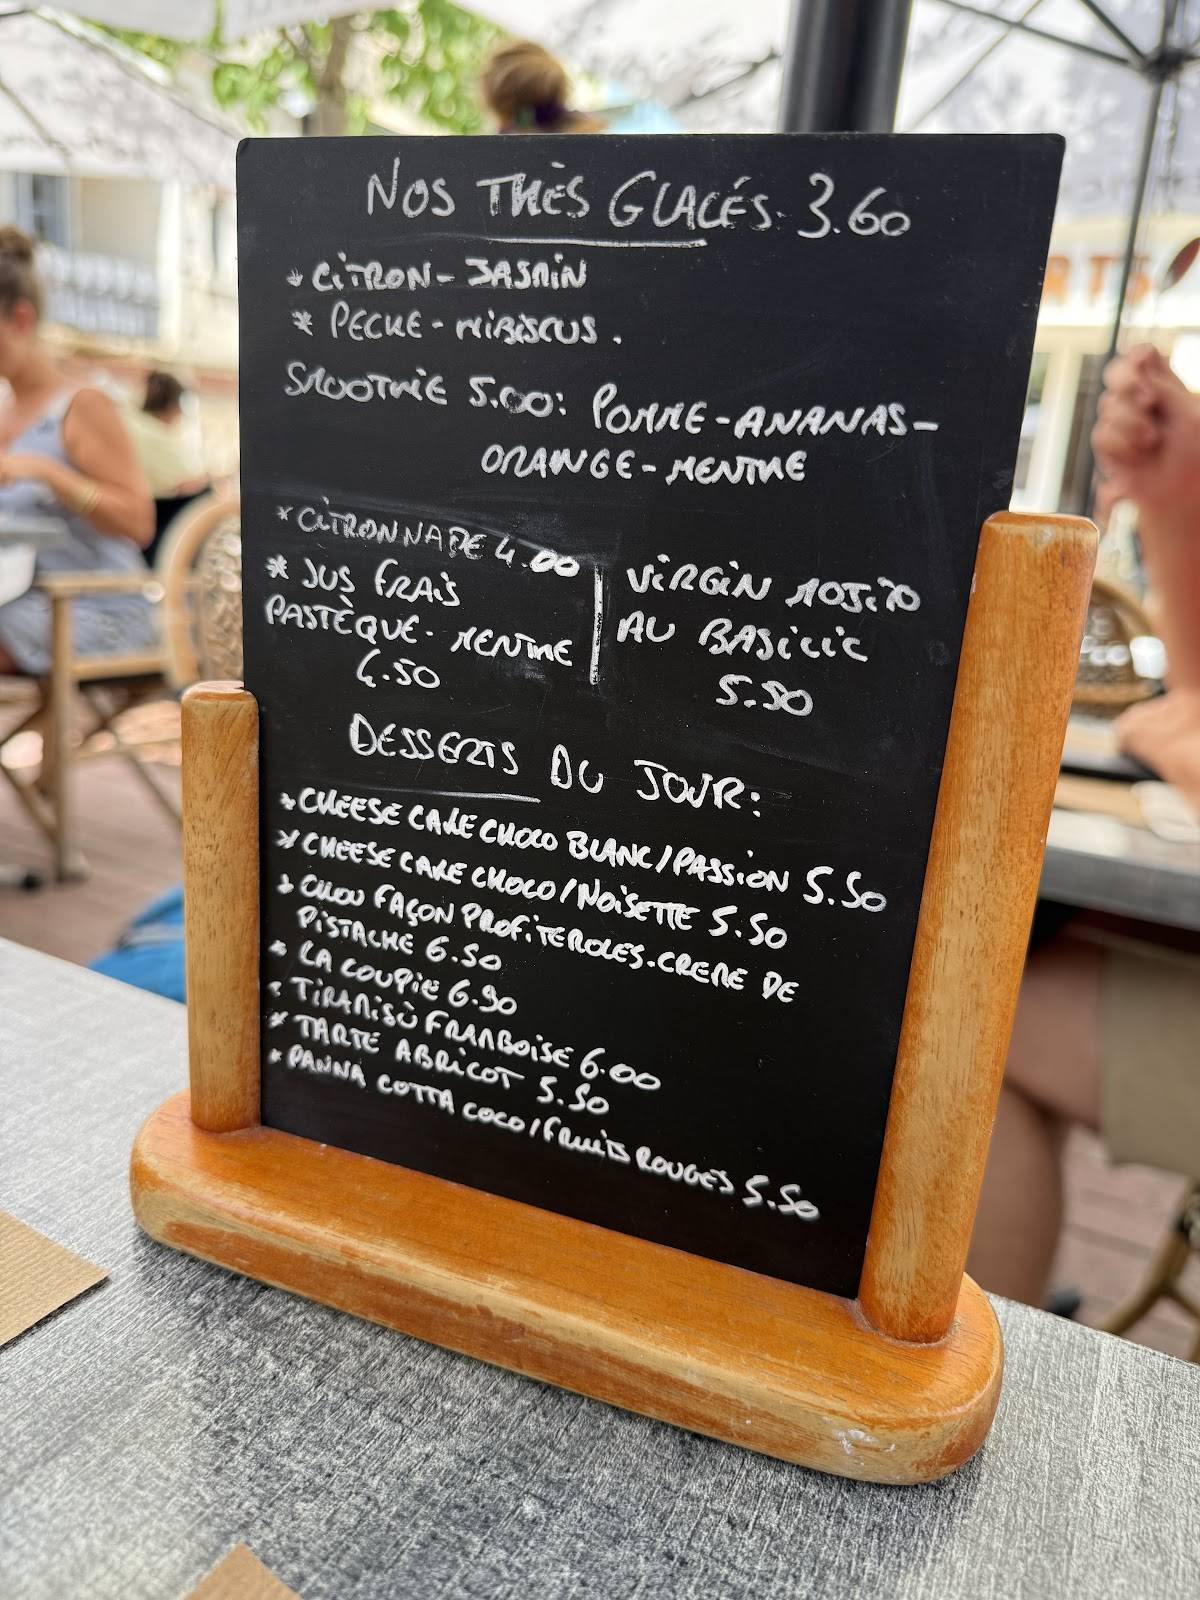 NOS THÈS GLACÉS. 3.60
* CITRON - JASMIN
* PECHE - HIBISCUS.
SMOOTHIE 5.00: POMME - ANANAS -
ORANGE - MENTHE
* CITRONNADE 4.00
* JUS FRAIS
PASTÈQUE - MENTHE
VIRGIN MOJITO
AU BASILIC
5.50
DESSERTS DU JOUR:
* CHEESE CAKE CHOCO BLANC/PASSION 5.50
* CHEESE CAKE CHOCO/NOISETTE 5.50
* CHOU FAÇON PROFITEROLES. CREME DE
PISTACHE 6.50
* LA COUPIE 6.90
* TIRAMISÙ FRAMBOISE 6.00
* TARTE ABRICOT 5.50
* PANNA COTTA COCO/FRUITS ROUGES 5.50